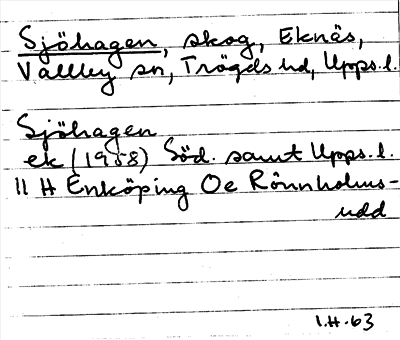 Sjöhagen, skog, Eknäs,
Vallby sn, Trögds hd, Upps.l.
Sjöhagen
ek (1958) Söd. samt Upps.l.
11 H Enköping Oe Rönnholms-
udd
1.H.63